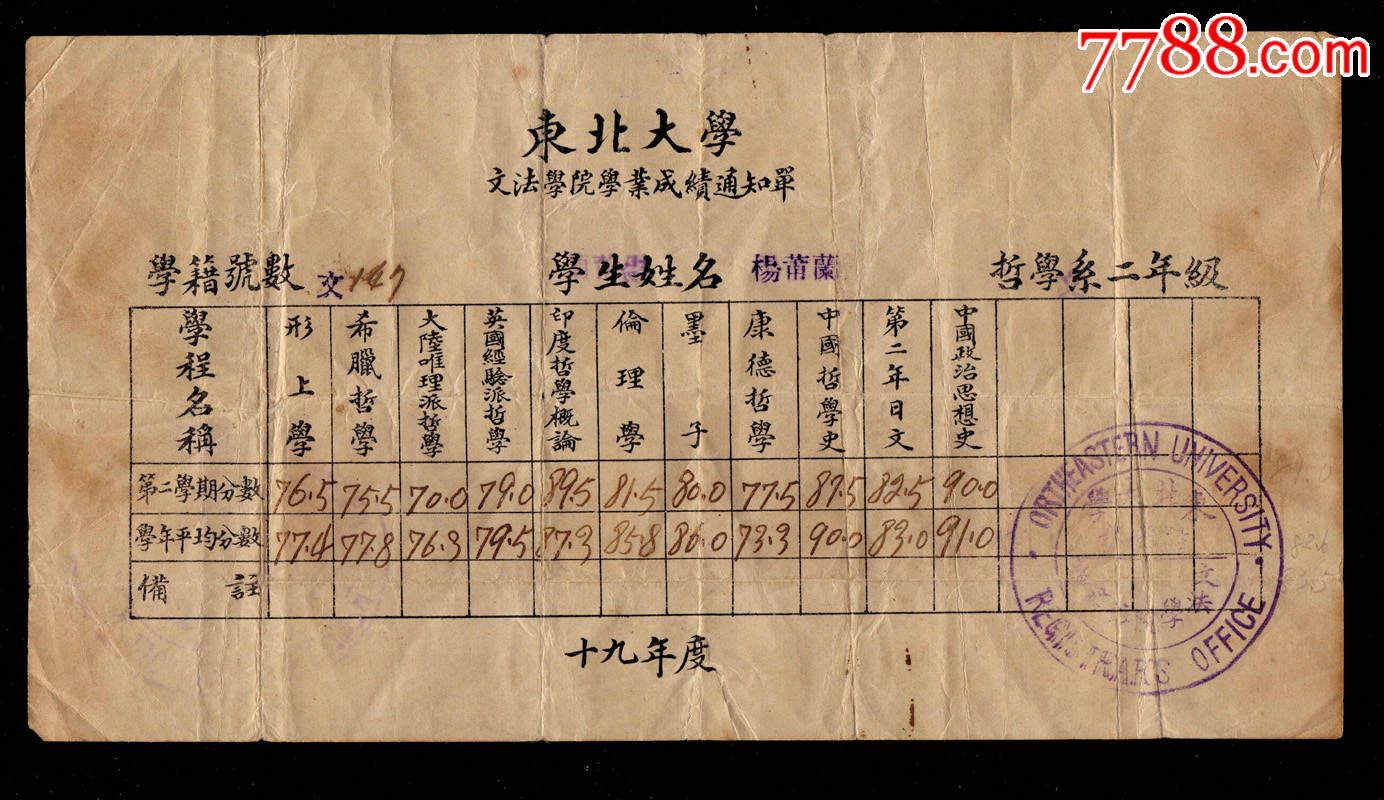 7788.com
東北大學
文法學院學業成績通知單
學籍號數 文147 學生姓名 楊莆蘭 哲學系二年級
學程名稱 形上學 希臘哲學 大陸唯理派哲學 英國經驗派哲學 印度哲學概論 倫理學 墨子 康德哲學 中國哲學史 第二年日文 中國政治思想史
第二學期分數 76.5 75.5 70.0 79.0 89.5 81.5 80.0 77.5 87.5 82.5 90.0
學年平均分數 77.4 77.8 76.3 79.5 87.3 85.8 86.0 73.3 90.0 83.0 91.0
備註
十九年度
ORTHEASTERN UNIVERSITY
REGISTRAR'S OFFICE
文法學